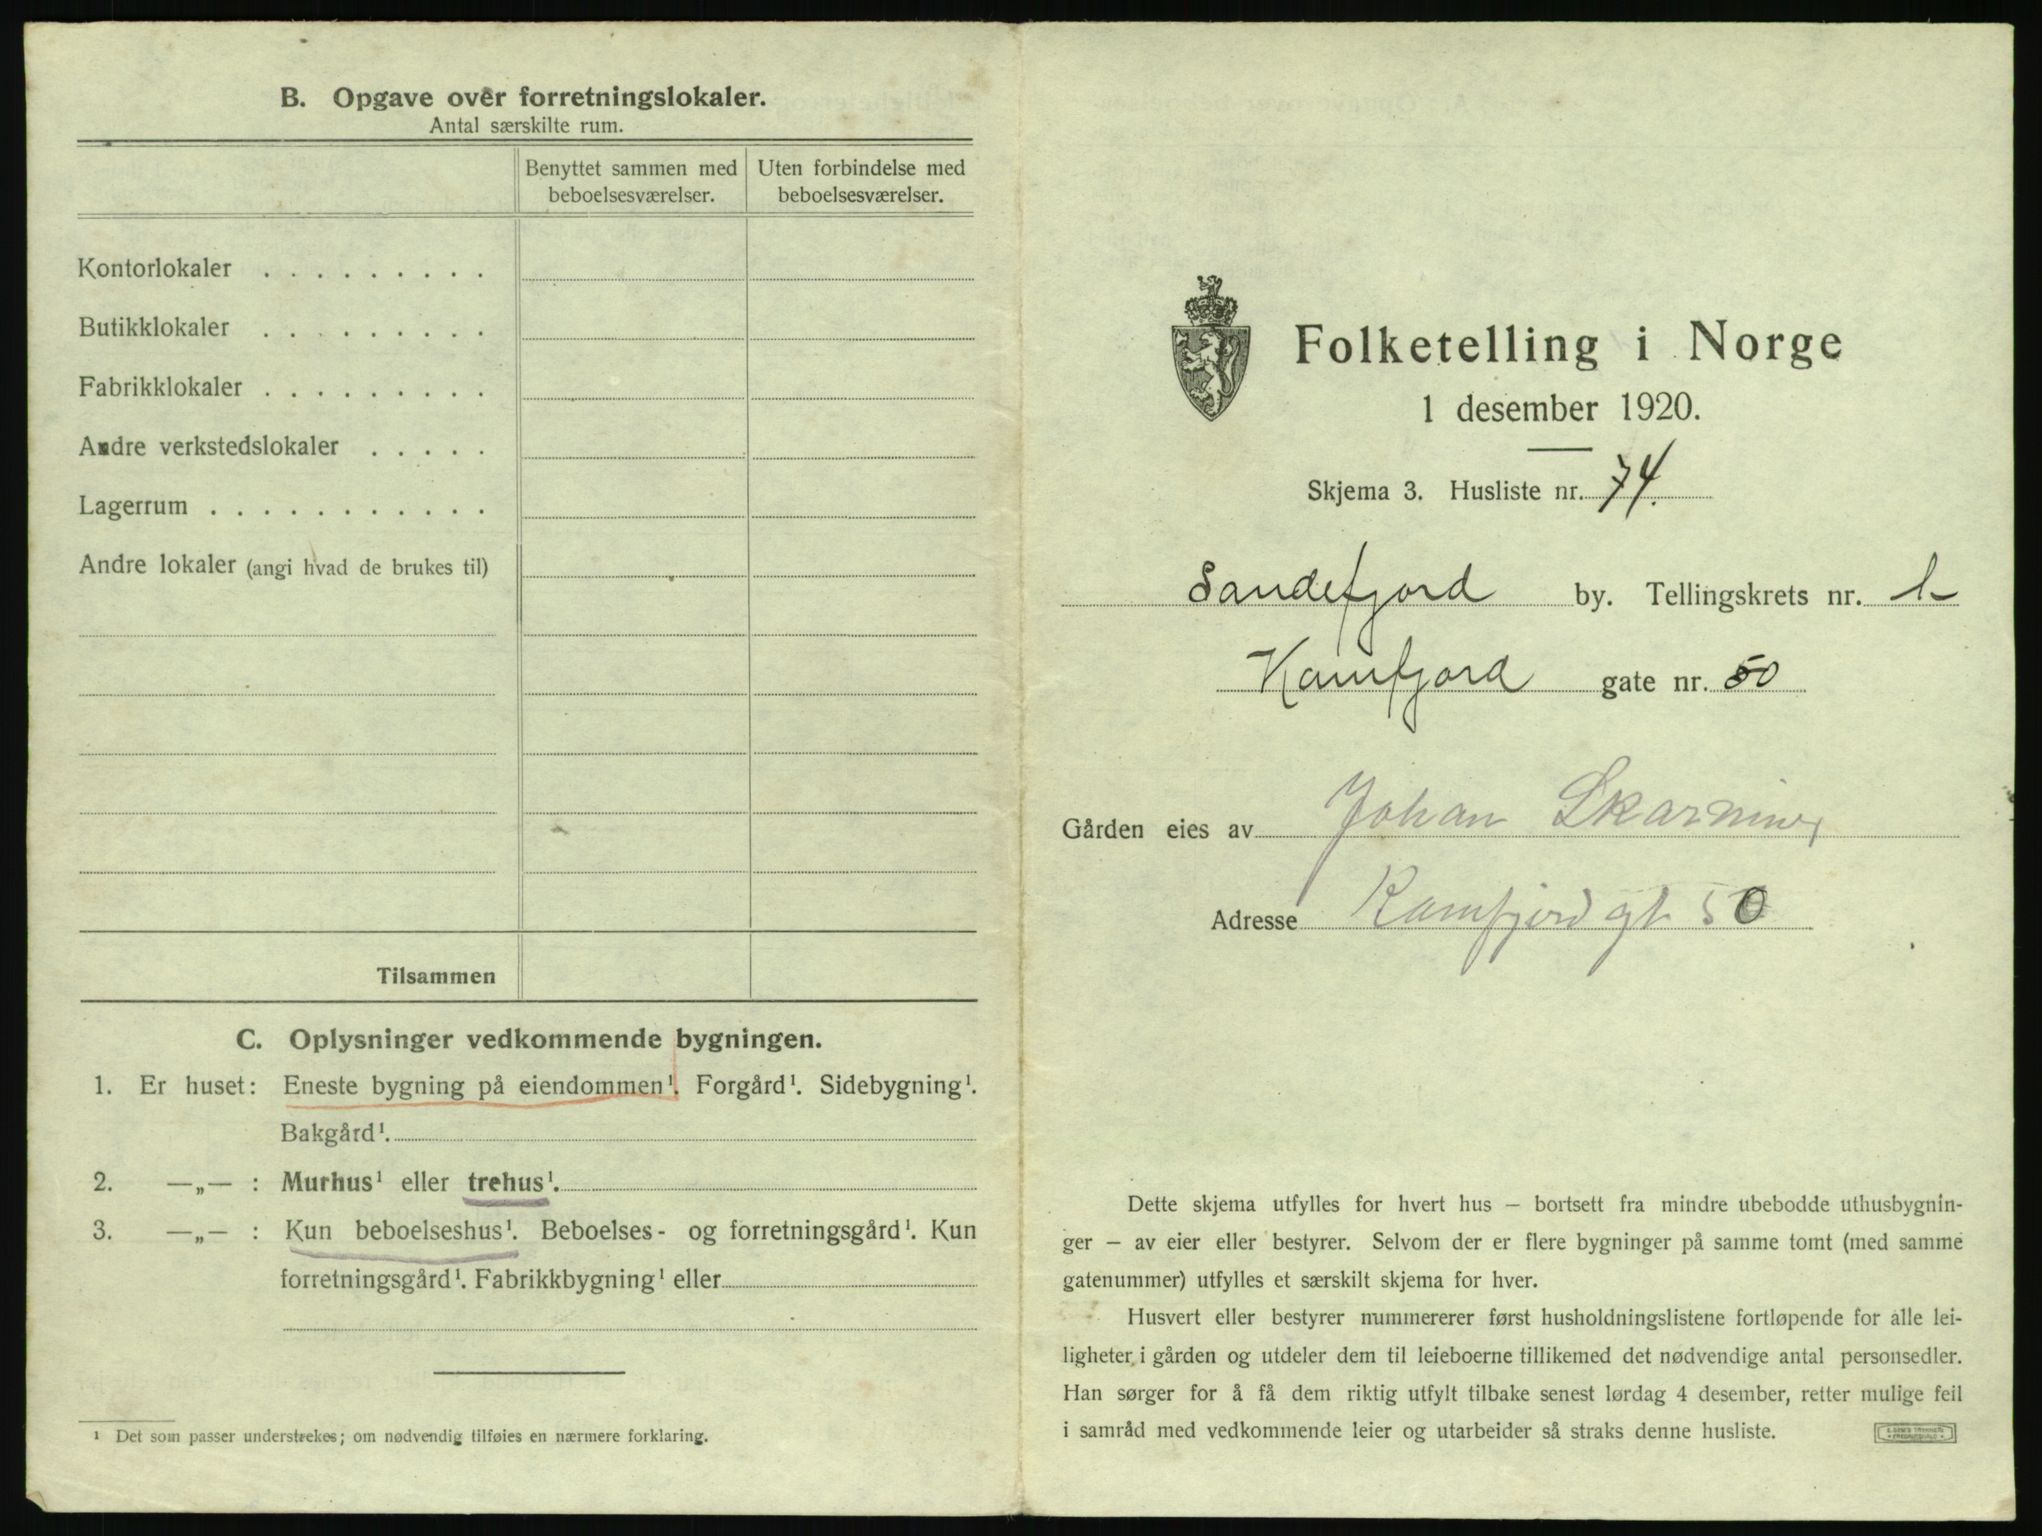 B. Opgave over forretningslokaler.
Antal særskilte rum.
Benyttet sammen med beboelsesværelser.
Uten forbindelse med beboelsesværelser.
Kontorlokaler . . . . . . . . .
Butikklokaler . . . . . . . . .
Fabrikklokaler . . . . . . . . .
Andre verkstedslokaler . . . . .
Lagerrum . . . . . . . . . . .
Andre lokaler (angi hvad de brukes til)
Tilsammen
C. Oplysninger vedkommende bygningen.
1. Er huset: Eneste bygning på eiendommen¹. Forgård¹. Sidebygning¹.
Bakgård¹.
2. —„— : Murhus¹ eller trehus¹.
3. —„— : Kun beboelseshus¹. Beboelses- og forretningsgård¹. Kun
forretningsgård¹. Fabrikkbygning¹ eller
¹ Det som passer understrekes; om nødvendig tilføies en nærmere forklaring.
Folketelling i Norge
1 desember 1920.
Skjema 3. Husliste nr. 74.
Sandefjord by. Tellingskrets nr. 1
Kamfjord gate nr. 50
Gården eies av Johan
Adresse Kamfjord gt 50
Dette skjema utfylles for hvert hus – bortsett fra mindre ubebodde uthusbygnin-
ger – av eier eller bestyrer. Selvom der er flere bygninger på samme tomt (med samme
gatenummer) utfylles et særskilt skjema for hver.
Husvert eller bestyrer nummererer først husholdningslistene fortløpende for alle lei-
ligheter i gården og utdeler dem til leieboerne tillikemed det nødvendige antal personsedler.
Han sørger for å få dem riktig utfylt tilbake senest lørdag 4 desember, retter mulige feil
i samråd med vedkommende leier og utarbeider så straks denne husliste.